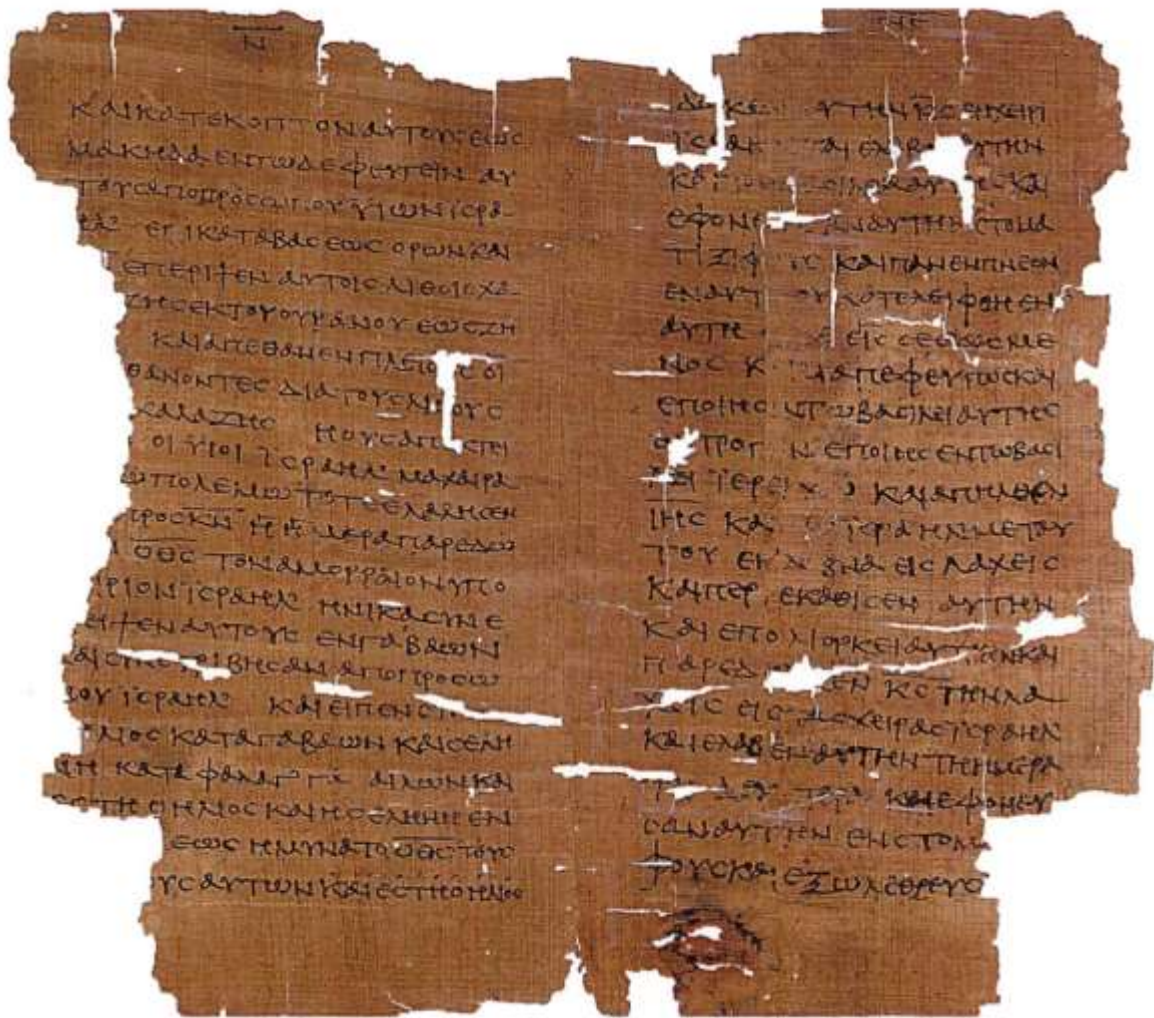 Ν
ΚΑΙΚΑΤΕΚΟΠΤΟΝΑΥΤΟΥϹΕΩϹ
ΜΑΚΗΔΑΕΝΤΩΔΕΦΕΥΓΕΙΝΑΥ
ΤΟΥϹΑΠΟΠΡΟϹΩΠΟΥΥΙΩΝΙϹΡΑ
ΕΠΙΚΑΤΑΒΑϹΕΩϹΟΡΩΝΚΑΙ
ΕΠΕΡΙΨΕΝΑΥΤΟΙϹΛΙΘΟΙϹΧΑ
ΖΗϹΕΚΤΟΥΟΥΡΑΝΟΥΕΩϹΖΗ
ΚΑΙΑΠΕΘΑΝΕΝΠΛΕΙΟ ΟΙ
ΘΑΝΟΝΤΕϹΔΙΑΤΟΥϹΛΙΘΟΥϹ
ΧΑΛΑΖΗϹ ΗΟΥϹΑΠ ΚΤΕΙ
ΟΙΥΙΟΙΙϹΡΑΗΛΜΑΧΑΙΡΑ
ΠΟΛΕΜΩΤΟΤΕΕΛΑΛΗϹΕΝ
ΠΡΟϹΚΝΗΗΜΕΡΑΠΑΡΕΔΩ
ΟΘϹ ΤΟΝΑΜΟΡΡΑΙΟΝΥΠΟ
ΡΙΟΝΙϹΡΑΗΛ ΗΝΙΚΑϹΥΝΕ
ΙΨΕΝΑΥΤΟΥϹΕΝΓΑΒΑΩΝ
ΑΙϹΥΝΕΤΡΙΒΗϹΑΝΑΠΟΠΡΟϹΩ
ΠΟΥΙϹΡΑΗΛ ΚΑΙΕΙΠΕΝ
ΛΙΟϹΚΑΤΑΓΑΒΑΩΝΚΑΙϹΕΛΗ
ΝΗΚΑΤΑΦΑΡΑΓΓΑ ΑΙΛΩΝΚΑΙ
ΕϹΤΗΟΗΛΙΟϹΚΑΙΗϹΕΛΗΝΗΕΝ
ΕΩϹΗΜΥΝΑΤΟΟΘϹΤΟΥϹ
ΟΥϹΑΥΤΩΝΚΑΙΕϹΤΗΟΗΛΙΟϹ
ΔΩΚΕ ΑΥΤΗΝΚϹΕΝΧΕΙΡΙ
ΙϹΡΑΗ ΚΑΙΕΛΑΒΟ ΑΥΤΗΝ
ΚΑΙ ΚΑΙ
ΕΦΟΝΕΥ ΑΝΑΥΤΗΝ ϹΤΟΜΑ
ΤΙΞΙΦΟΥϹΚΑΙΠΑΝΕΝΠΝΕΟΝ
ΕΝΑΥΤ ΟΥΚΑΤΕΛΕΙΦΘΗΕΝ
ΑΥΤΗ ΕΙϹϹΕϹΩϹΜΕ
ΝΟϹΚ ΔΙΑΠΕΦΕΥΓΩϹΚΑΙ
ΕΠΟΙΗϹ ΝΤΩΒΑϹΙΛΕΙΑΥΤΗϹ
Ο ΤΡΟΠ ΝΕΠΟΙΗϹΕΝΤΩΒΑϹΙ
ΛΕΙΙΕΡΕΙΧΩΚΑΙΑΠΗΛΘΕΝ
ΙΗϹΚΑΙ ΙϹΡΑΗΛΜΕΤΟΥ
ΤΟΥΕΚΛΕΒΝΑΕΙϹΛΑΧΕΙϹ
ΚΑΙΠΕΡ ΕΚΑΘΙϹΕΝΑΥΤΗΝ
ΚΑΙΕΠΟΛΙΟΡΚΕΙΑΥΤΗΝΚΑΙ
ΠΑΡΕΔ ΚΕΝΚϹΤΗΝΛΑ
ΧΕΙϹΕΙϹ ΑϹΧΕΙΡΑϹΙϹΡΑΗΛ
ΚΑΙΕΛΑΒΕΝΑΥΤΗΝΤΗΗΜΕΡΑ
ΚΑΙΕΦΟΝΕΥ
ϹΑΝΑΥΤΗΝΕΝϹΤΟΜΑ
ΦΟΥϹΚΑΙΕΞΩΛΕΘΡΕΥϹ